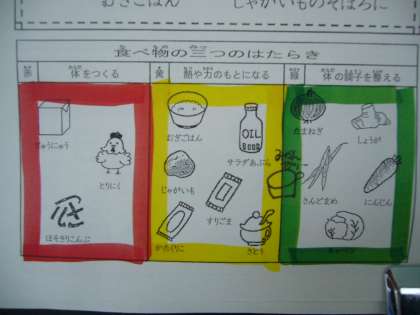 むぎごはん　じゃがいものそぼろに
食べ物の三つのはたらき
赤 体をつくる 黄 熱や力のもとになる 緑 体の調子を整える
ぎゅうにゅう
むぎごはん
OIL
たまねぎ
しょうが
とりにく
サラダあぶら
じゃがいも
すりごま
さんどまめ
にんじん
ほそぎりこんぶ
さとう